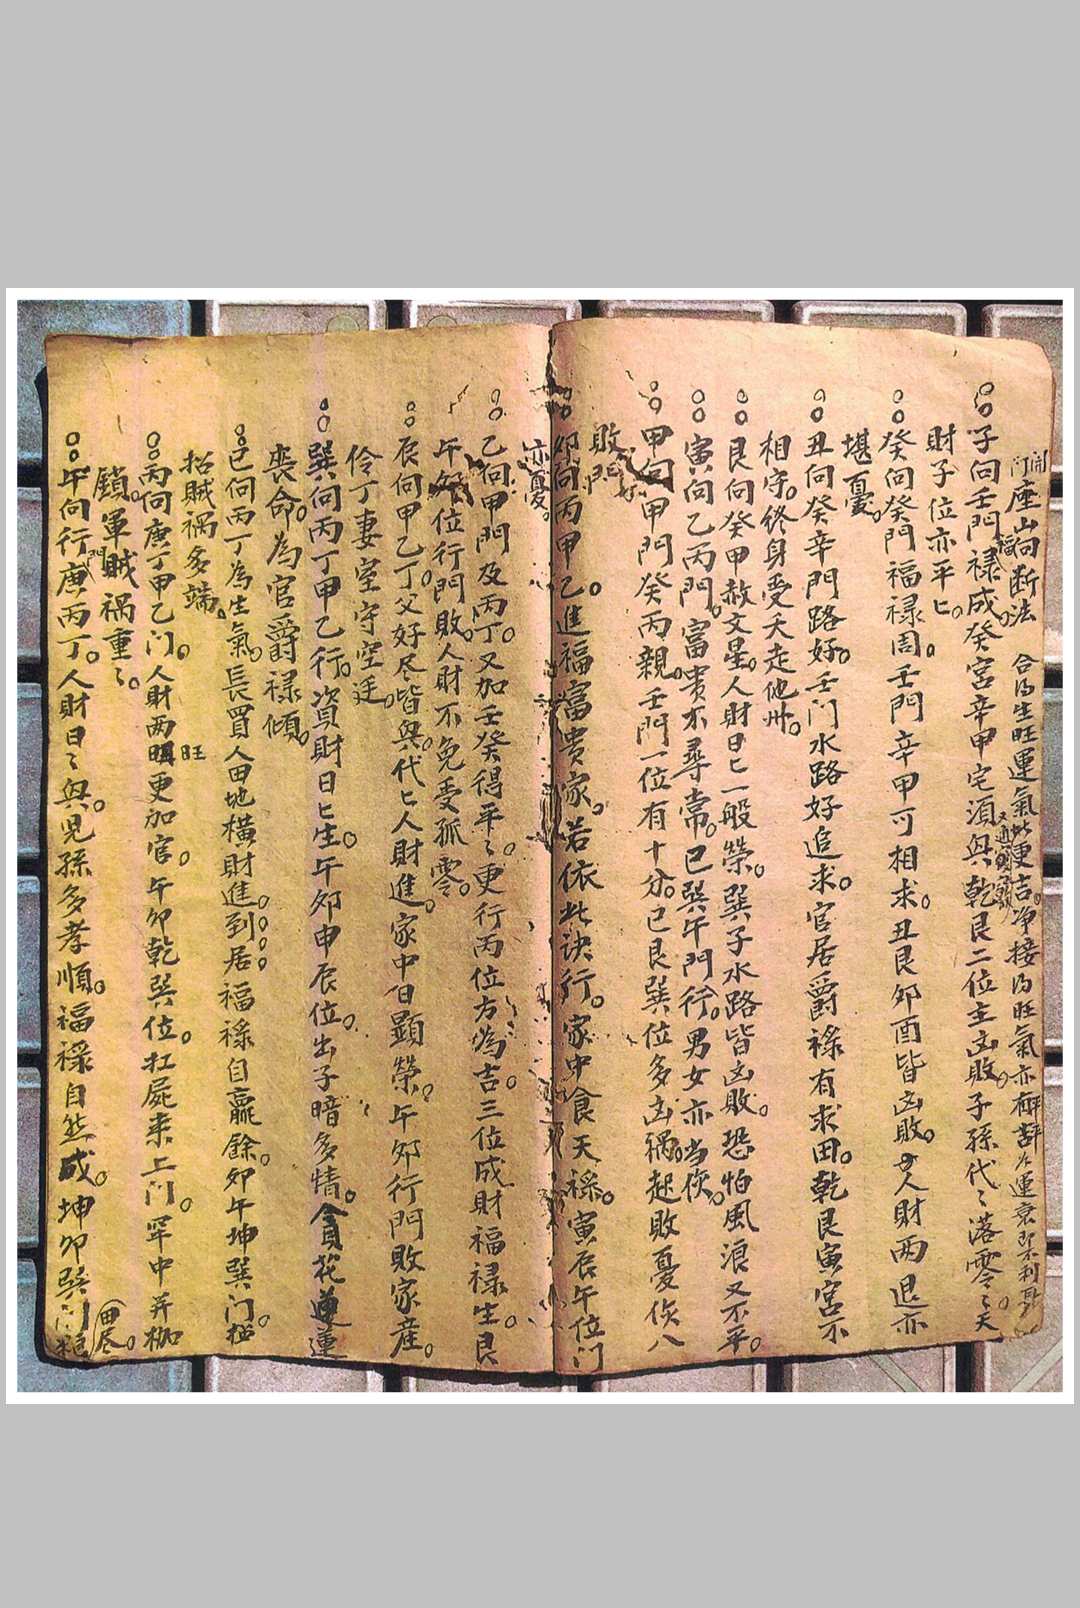 開門座山向断法　合得生旺運氣更吉。净接得旺氣亦有
子向壬門福禄成。癸宮辛甲宅須興。乾艮二位主凶敗。子孫代〻落零〻。天
財子位亦平匕。
癸向癸門福禄周。壬門辛甲可相求。丑艮卯酉皆凶敗。人財両退亦
堪憂。
丑向癸辛門路好。壬门水路好追求。官居爵祿有求田。乾艮寅宮不
相守。終身受夭走他州。
艮向癸甲赦文星。人財日匕一般榮。巽子水路皆凶敗。恐怕風浪又不平。
寅向乙丙門。富貴不尋常。巳巽午門行。男女亦当
甲向甲門癸丙親。壬門一位有十分。巳艮巽位多凶禍。起敗憂
敗門
卯向丙甲乙。進福富貴家。若依此訣行。家中食天禄。寅辰午位门
亦憂。
乙向甲門及丙丁。又加壬癸得平〻。更行丙位方為吉。三位成財福禄生。艮
午卯位行門敗。人財不免受孤零。
辰向甲乙丁。父好尽皆興。代匕人財進。家中自顯榮。午卯行門敗家産。
伶丁妻室守空廷。
巽向丙丁甲乙行。資財日匕生。午卯申辰位。出子暗多情。貪花
喪命。為官爵禄傾。
巳向丙丁為生氣。長買人田地橫財進。到居福祿自贏餘。卯午坤巽门
招賊禍多端。
丙向庚丁甲乙门。人財両旺更加官。午卯乾巽位。扛屍来上门。罕中并枷
鎖。軍賊禍重〻。
午向行庚丙丁。人財日〻興。児孫多孝順。福祿自然成。坤卯巽门
田尽。